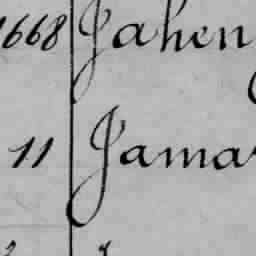 1668 Jahen
11 Jamar